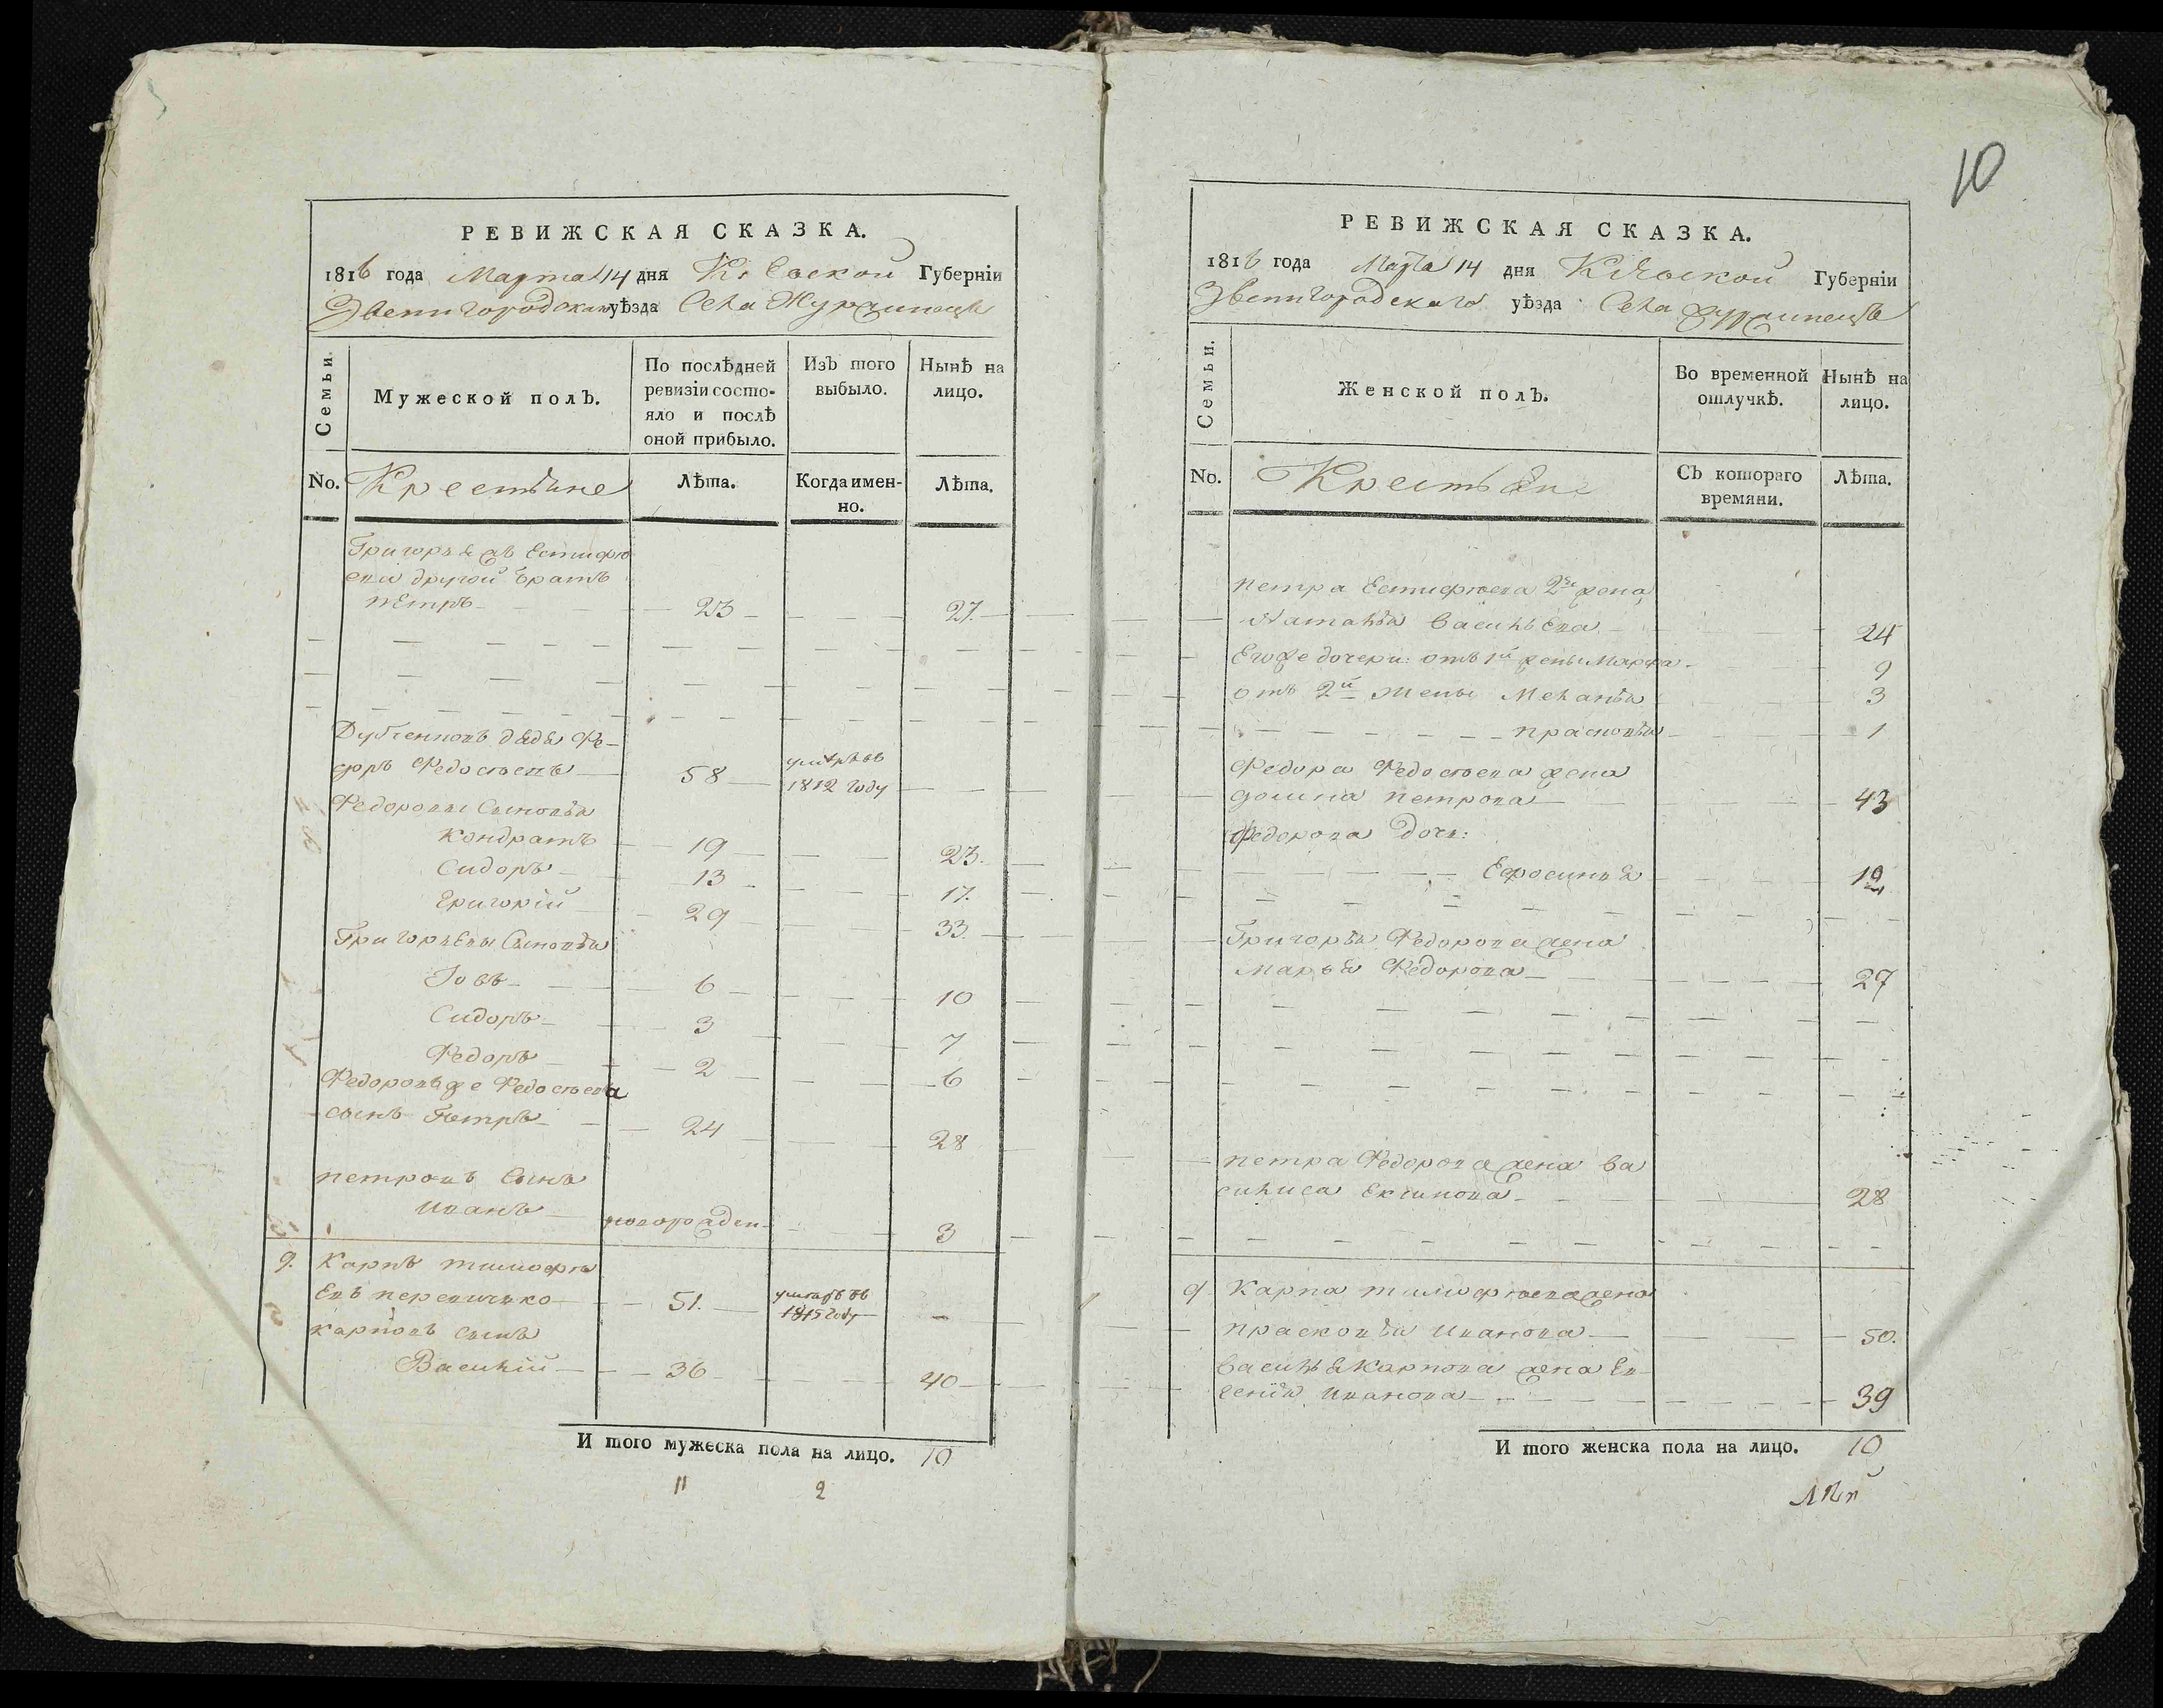 РЕВИЖСКАЯ СКАЗКА.
1816 года Марта 14 дня Кіевской Губерніи
Звенигородскаго уѣзда Села Журжинецъ
Семьи.
Мужеской полъ.
По послѣдней
ревизіи состо-
яло и послѣ
оной прибыло.
Изъ того
выбыло.
Нынѣ на
лицо.
No. Крестьяне Лѣта. Когда имен-
но.
Лѣта.
Григорья Естифѣ
ева другой братъ
петръ 23 27.
дядя Фе-
доръ Федосѣевъ 58 умре въ
1812 году
Федоровы Сыновья
Кондратъ 19 23.
Сидоръ 13 17.
Григорій 29 33
Григорьевы Сыновья
Іовъ 6 10
Сидоръ 3 7
Федоръ 2 6
Федоровъ же Федосѣева
сынъ Петръ 24 28
петровъ Сынъ
иванъ новорожден 3
9. Карпъ тимофѣ
евъ 51. умре въ
1815 году
карповъ сынъ
Василій 36 40
И того мужеска пола на лицо. 10
11 2
10
РЕВИЖСКАЯ СКАЗКА.
1816 года Марта 14 дня Кіевской Губерніи
Звенигородскаго уѣзда Села Журжинецъ
Семьи.
Женской полъ.
Во временной
отлучкѣ.
Нынѣ на
лицо.
No. Крестьяне Съ котораго
времяни.
Лѣта.
петра Естифѣева 2я жена
Наталья васильева 24
Его же дочери: отъ 1й жены Марфа 9
отъ 2й жены Меланья 3
прасковья 1
Федора Федосѣева жена
домна петрова 43
Федорова дочь:
Ефросинья 19
Григорья Федорова жена
марья Федорова 27
петра Федорова жена ва
силиса Екимова 28
9 Карпа тимофѣева жена
прасковья иванова 50.
василья Карпова жена Ев
генія иванова 39
И того женска пола на лицо. 10